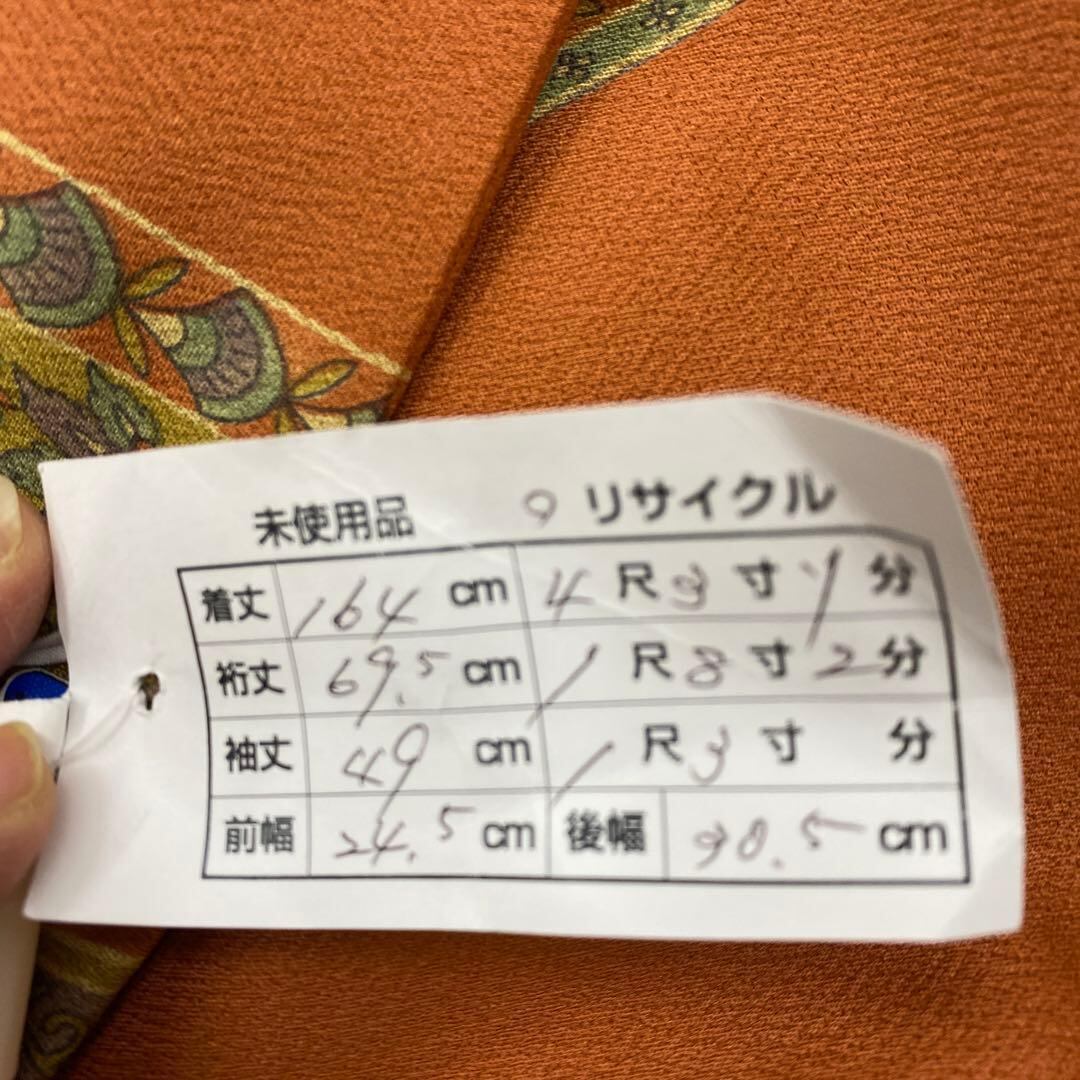 未使用品 ○ リサイクル
着丈 164 cm 4 尺 3 寸 1 分
裄丈 69.5 cm 1 尺 8 寸 2 分
袖丈 49 cm 1 尺 3 寸 分
前幅 24.5 cm 後幅 30.5 cm